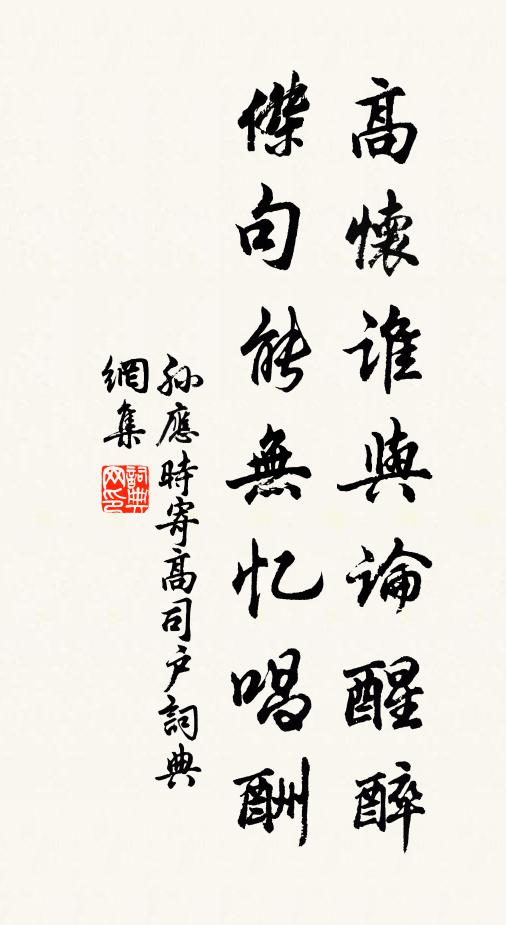 高懷誰與論醒醉
傑句能無忆唱酬
孙應時寄高司户詞典
網集
詞典網印